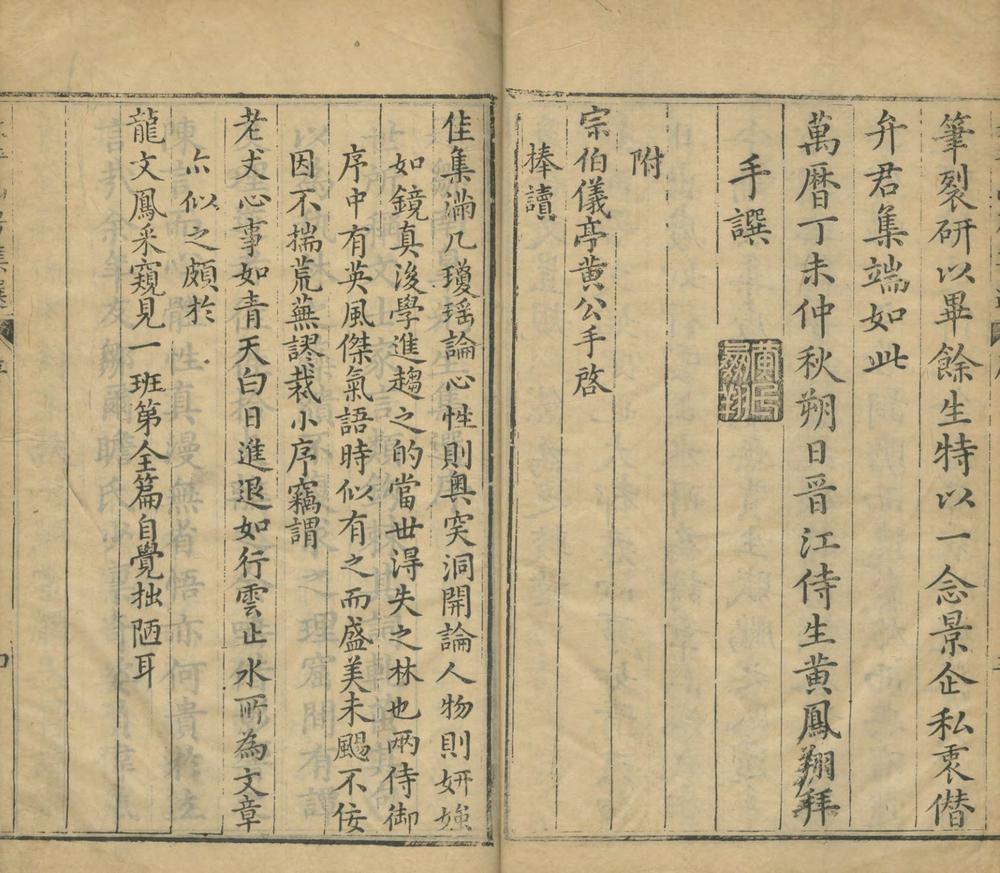 筆裂研以畢餘生特以一念景企私衷僣
弁君集端如此
萬曆丁未仲秋朔日晉江侍生黃鳳翔拜
手譔
黃氏鳴翔
附
宗伯儀亭黃公手啓
捧讀
佳集滿几瓊瑤論心性則奧突洞開論人物則妍媸
如鏡真後學進趨之的當世得失之林也兩侍御
序中有英風傑氣語時似有之而盛美未颺不佞
因不揣荒蕪謬裁小序竊謂
老丈心事如青天白日進退如行雲止水所為文章
亦似之頗於
龍文鳳釆窺見一班第全篇自覺拙陋耳